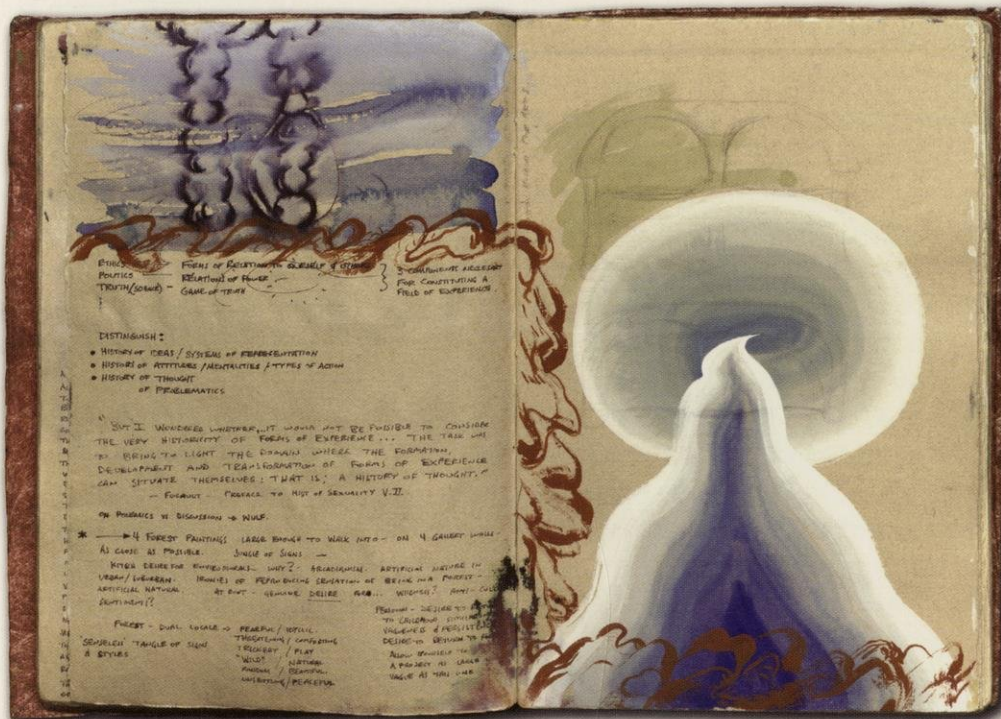 ETHICS — FORMS OF RELATION TO ONESELF & OTHERS
POLITICS — RELATIONS OF POWER
TRUTH/(SCIENCE) — GAME OF TRUTH
3 COMPONENTS NECESSARY
FOR CONSTITUTING A
FIELD OF EXPERIENCE.
DISTINGUISH:
• HISTORY OF IDEAS / SYSTEMS OF REPRESENTATION
• HISTORY OF ATTITUDES / MENTALITIES / TYPES OF ACTION
• HISTORY OF THOUGHT
OF PROBLEMATICS
"BUT I WONDERED WHETHER, IT WOULD NOT BE POSSIBLE TO CONSIDER
THE VERY HISTORICITY OF FORMS OF EXPERIENCE... THE TASK WAS
TO BRING TO LIGHT THE DOMAIN WHERE THE FORMATION,
DEVELOPMENT AND TRANSFORMATION OF FORMS OF EXPERIENCE
CAN SITUATE THEMSELVES: THAT IS, A HISTORY OF THOUGHT."
— FOUCAULT - PREFACE TO HIST OF SEXUALITY V.II.
ON POLEMICS VS DISCUSSION → WULF.
* → 4 FOREST PAINTINGS LARGE ENOUGH TO WALK INTO - ON 4 GALLERY WALLS
AS CLOSE AS POSSIBLE. JUNGLE OF SIGNS —
DESIRE FOR WHY? - ARTIFICIAL NATURE IN
URBAN/SUBURBAN. IRONIES OF EXPERIENCING SENSATION OF BEING IN A FOREST -
ARTIFICIAL NATURAL AT ROOT - GENUINE DESIRE FOR... ANTI-
SENTIMENT?
FOREST - DUAL LOCALE → FEARFUL / IDYLLIC
THREATENING / COMFORTING
TRICKERY / PLAY
"WILD" / NATURAL
RANDOM / BEAUTIFUL
UNSETTLING / PEACEFUL
TANGLE OF SIGN
& STYLES
- DESIRE TO
TO
VAGUENESS &
DESIRE TO RETURN TO
ALLOW MYSELF TO
A PROJECT AS LARGE
VAGUE AS YOU LIKE